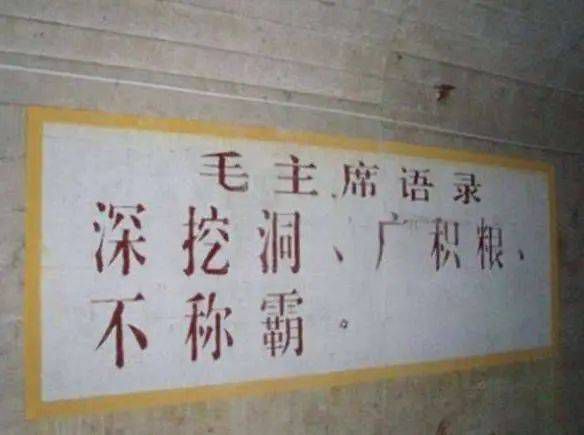 毛主席语录
深挖洞、广积粮、
不称霸。